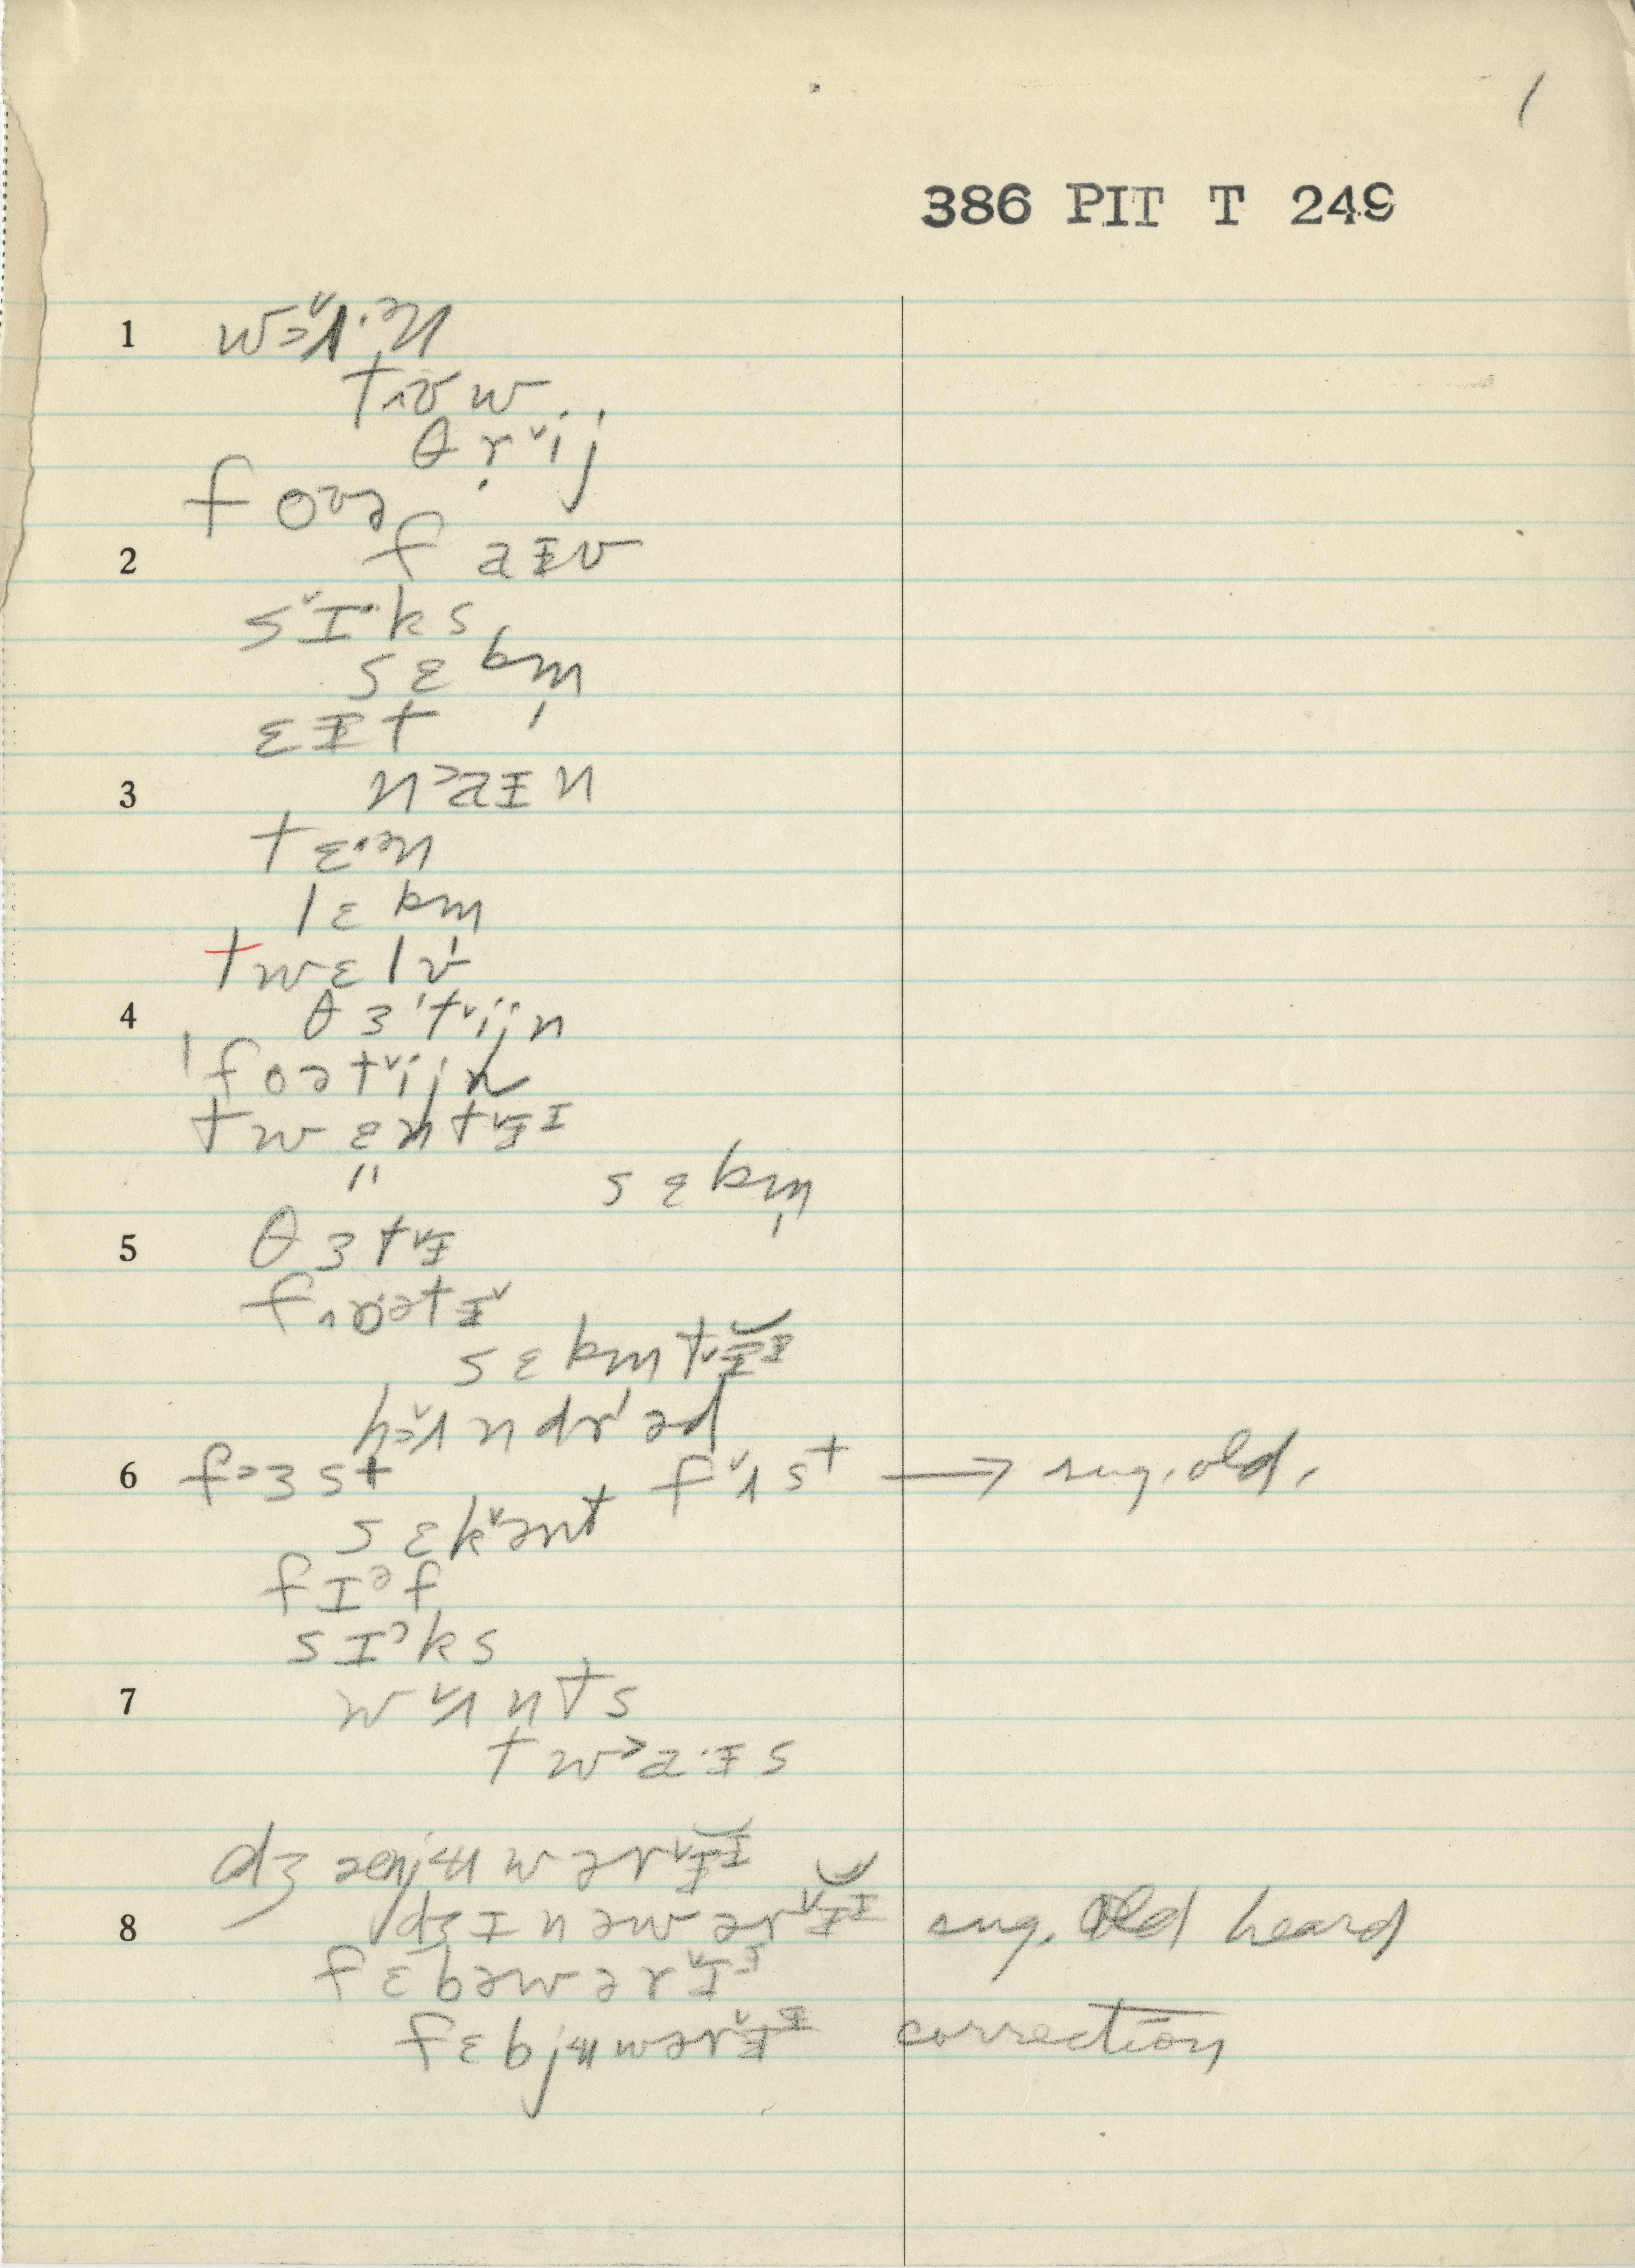 1
386 PIT T 249
1 w˃ʌ̌·ᵊn
tɪʊw
θrˇij
foʊə
2 f aɪv
sˇɪ·ks
sɛbm̩
ɛɪt
3 n˃aɪn
tɛ·ᵊn
lɛbm̩
twɛlv
4 θɜˈtˇijn
ˈfoətˇijn
twɛntˇɪᴵ
"
sɛbm̩
5 θɜtˇɪ
foətɪˇ
sɛbmtˇɪᴵ
hʌ̌ndrəd
6 f˃ɜst fˇʌst → sug. old.
sɛkˇənt
fɪᵊf
sɪ˃ks
7 wˇʌnts
tw˃a·ɪs
dʒænjʉwərˇɪᴵ
8 dʒɪnəwərˇɪᴵ sug. old heard
fɛbəwərˇɪᴵ
fɛbjʉwərˇɪᴵ correction